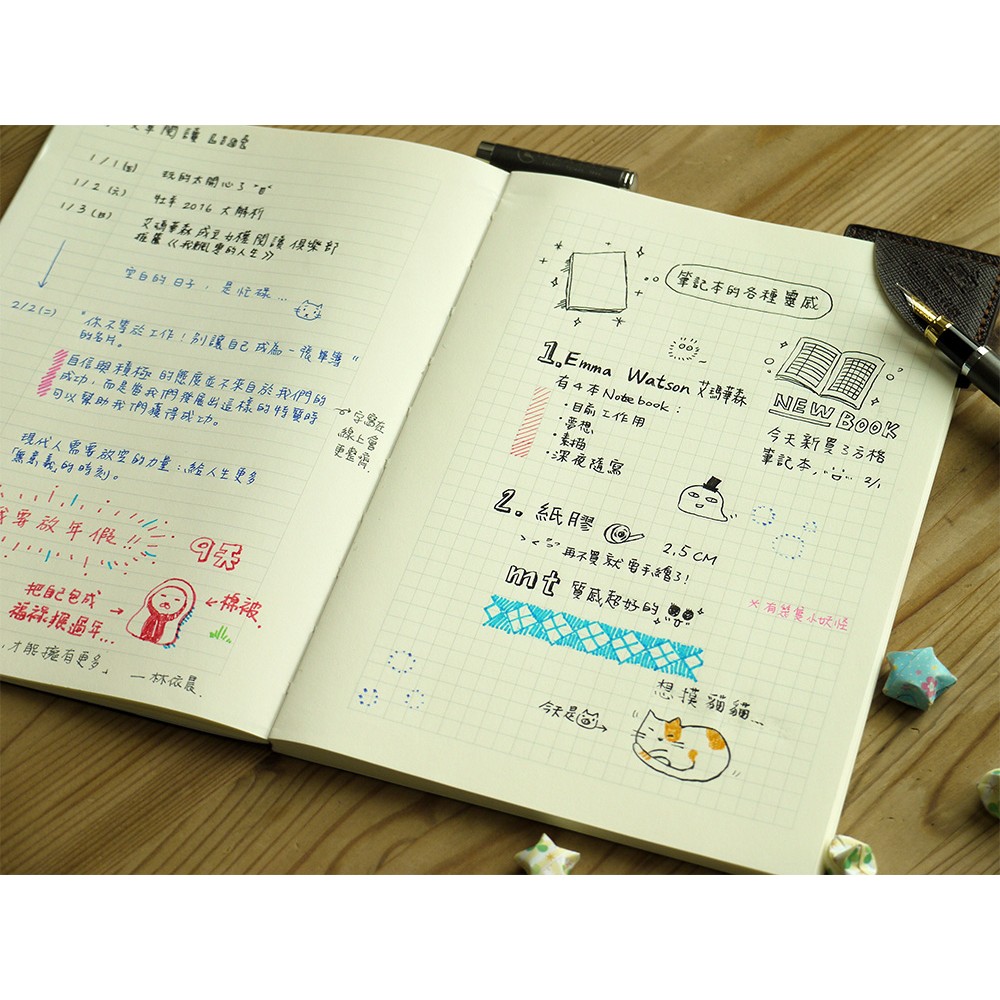 閱讀
1/1(五) 玩的太開心了"日"
1/2(六) 牡羊2016大解析
1/3(日) 艾瑪華森成立女權閱讀俱樂部
推薦《我飄零的人生》
空白的日子，是忙碌...
2/2(二) "你不等於工作！別讓自己成為一張單薄"
的名片。
自信與積極的態度並不來自於我們的
成功，而是當我們發展出這樣的特質時
可以幫助我們獲得成功。
字寫在
線上會
更整齊.
現代人需要放空的力量：給人生更多
無意義的時刻。
我要放年假!!
9天
把自己包成
福祿猴過年...
棉被
才能擁有更多」
—林依晨.
筆記本的各種靈感
1. Emma Watson 艾瑪華森
有4本Notebook：
·目前工作用
·夢想
·素描
·深夜隨寫
NEW BOOK
今天新買了方格
筆記本, 2/1
2. 紙膠 2.5CM
再不買就要手繪了!
mt 質感超好的
×有幾隻小妖怪
想摸貓貓...
今天是